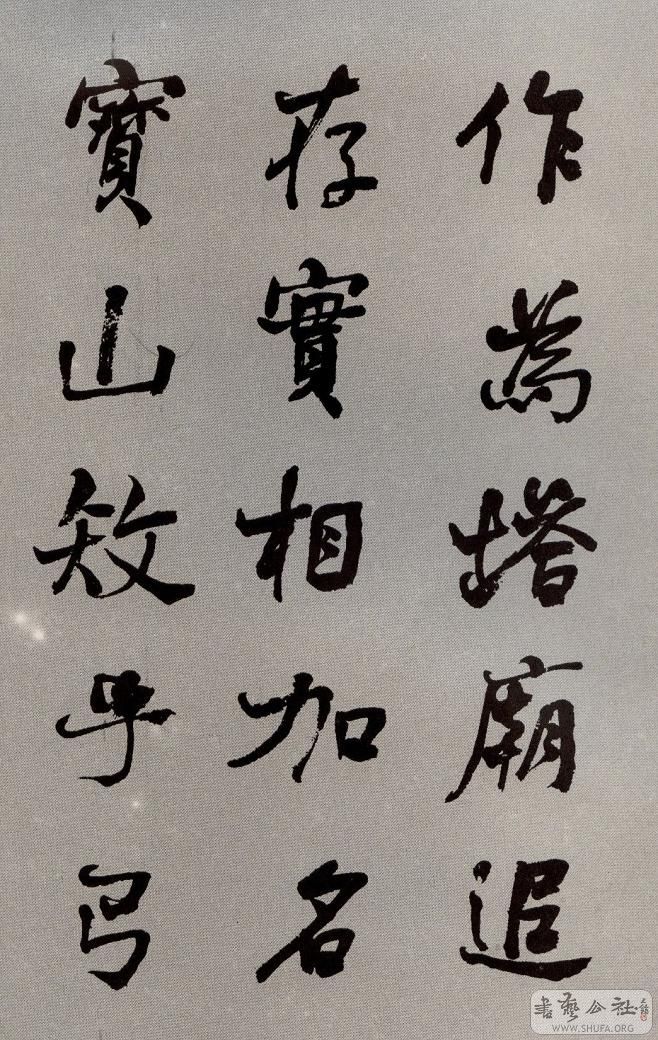 作為塔廟追
存實相加名
寶山乎
書藝公社
WWW.SHUFA.ORG